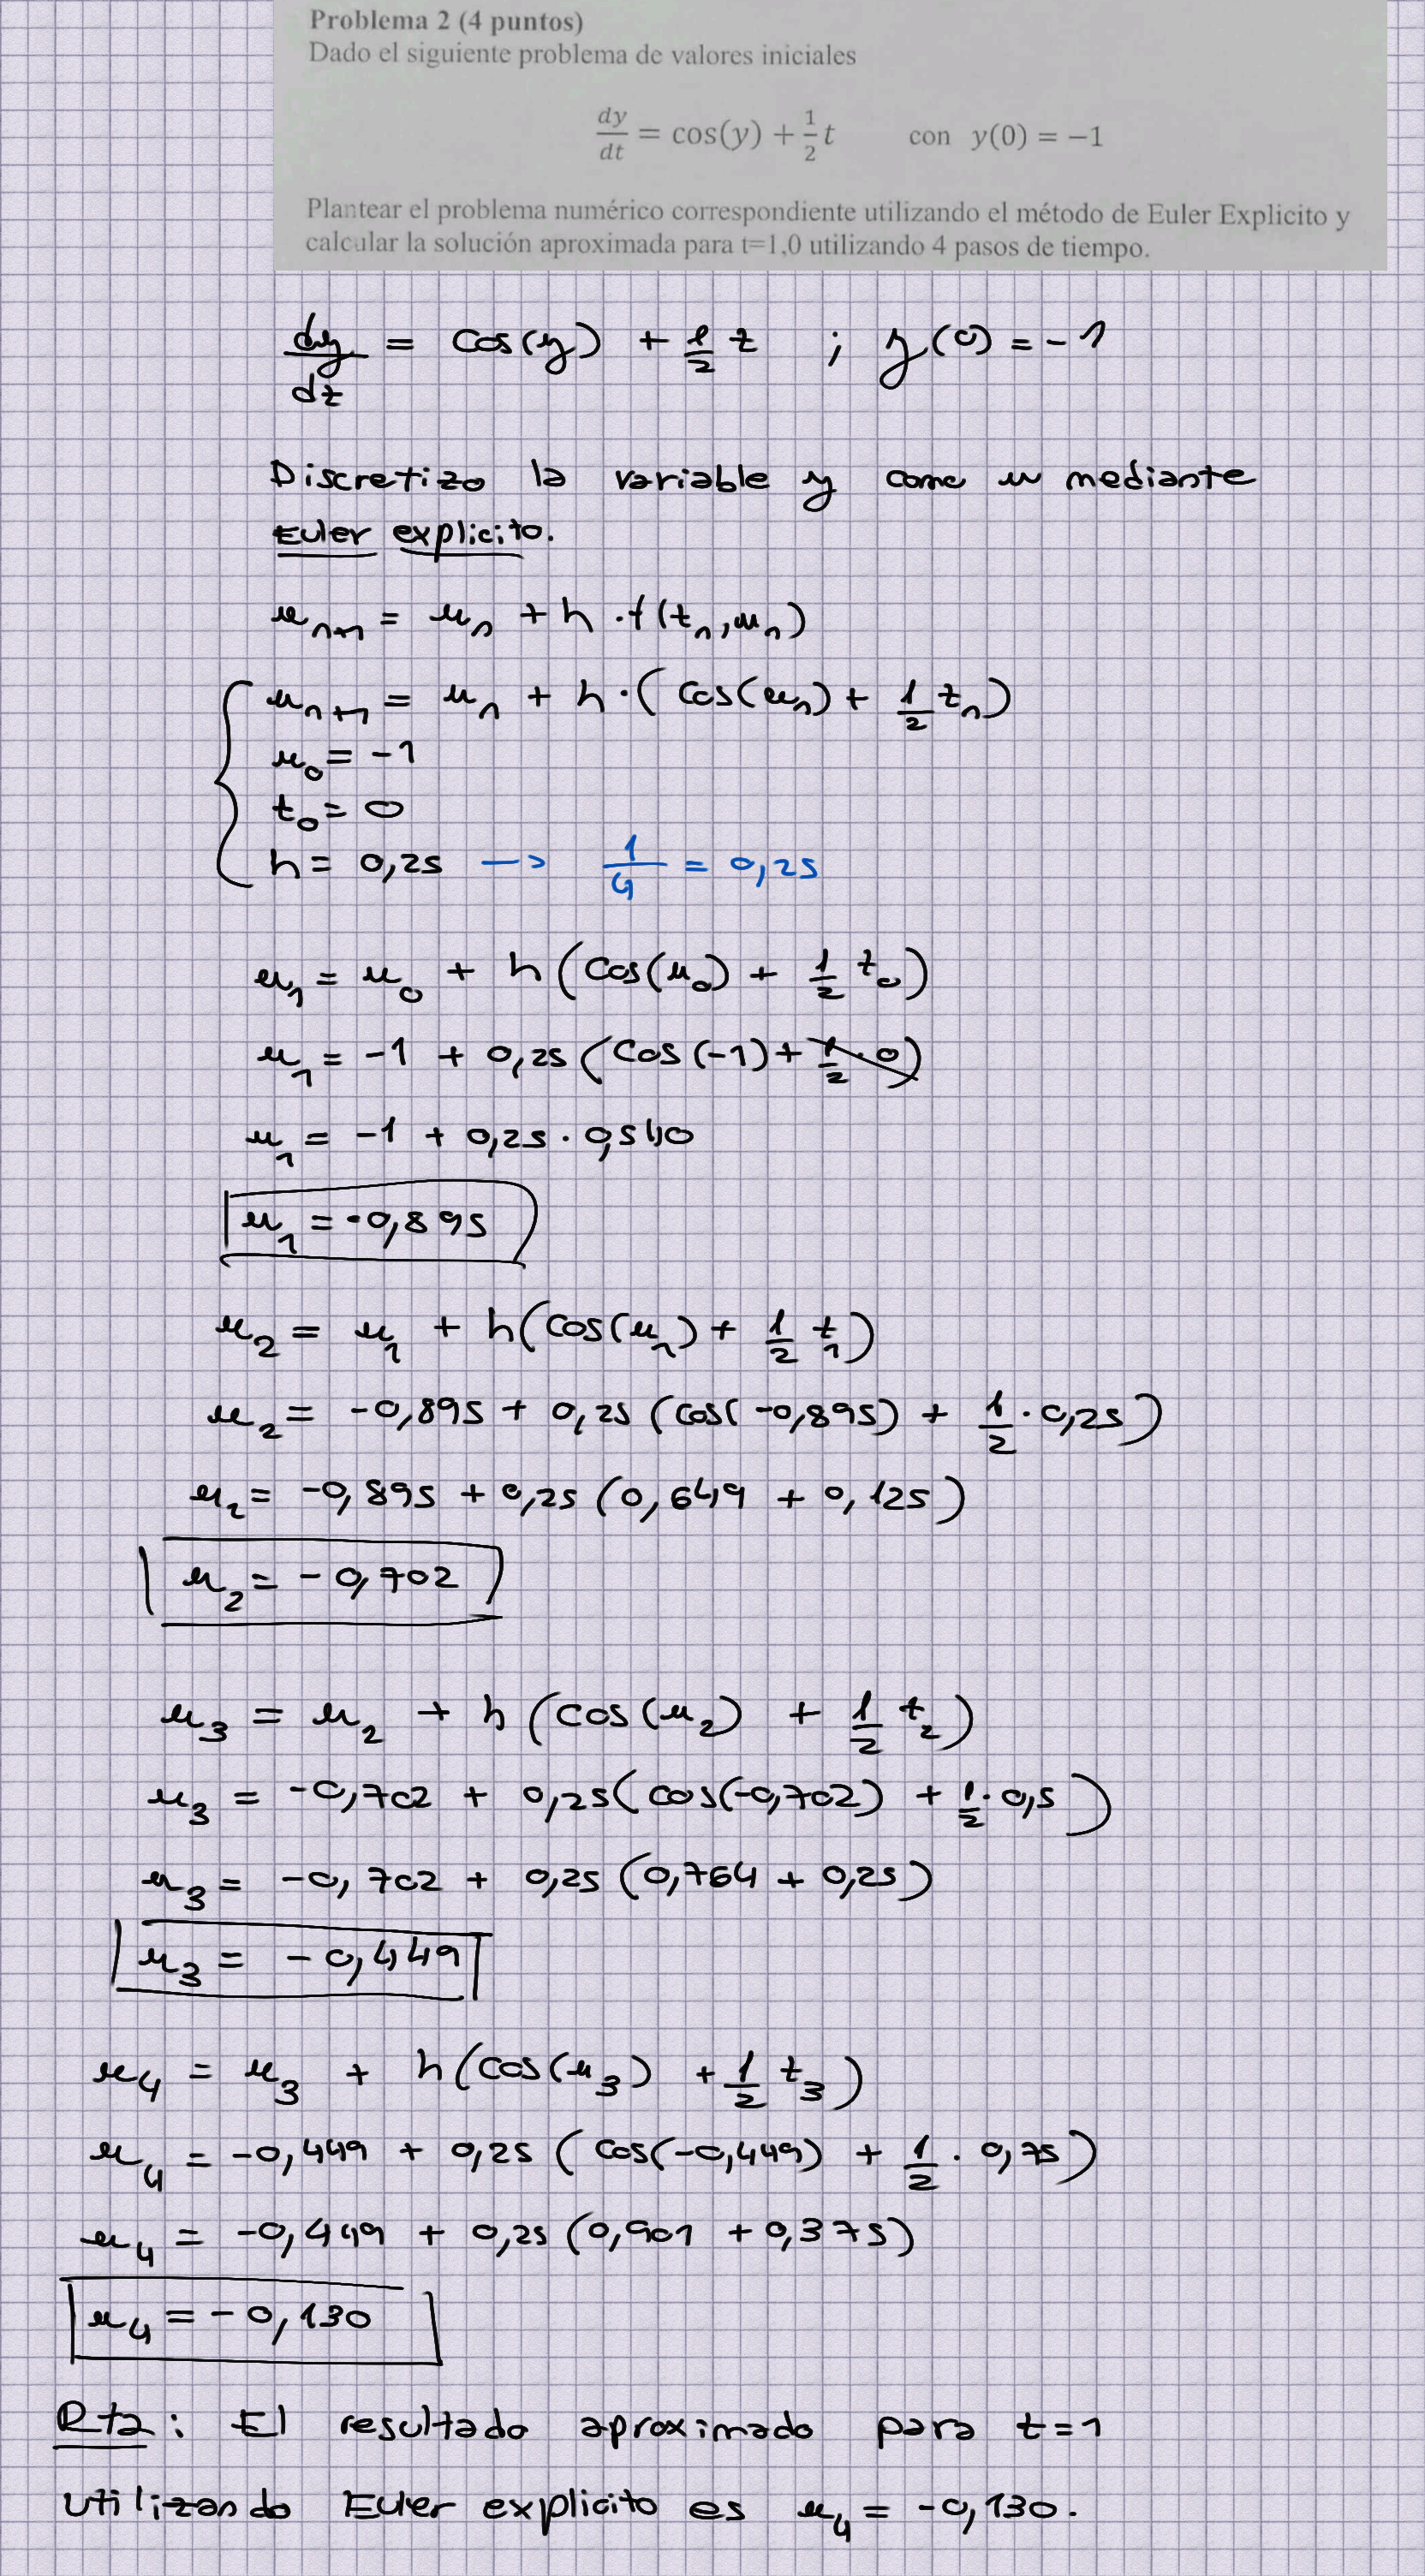 Problema 2 (4 puntos)
Dado el siguiente problema de valores iniciales
dy/dt = cos(y) + 1/2 t con y(0) = −1
Plantear el problema numérico correspondiente utilizando el método de Euler Explicito y
calcular la solución aproximada para t=1,0 utilizando 4 pasos de tiempo.
dy/dt = cos(y) + 1/2 t ; y(0) = -1
Discretizo la variable y como u mediante
Euler explicito.
u_{n+1} = u_n + h · f(t_n, u_n)
u_{n+1} = u_n + h · (cos(u_n) + 1/2 t_n)
u_0 = -1
t_0 = 0
h = 0,25 -> 1/4 = 0,25
u_1 = u_0 + h (cos(u_0) + 1/2 t_0)
u_1 = -1 + 0,25 (cos(-1) + 1/2 · 0)
u_1 = -1 + 0,25 · 0,540
u_1 = -0,895
u_2 = u_1 + h (cos(u_1) + 1/2 t_1)
u_2 = -0,895 + 0,25 (cos(-0,895) + 1/2 · 0,25)
u_2 = -0,895 + 0,25 (0,649 + 0,125)
u_2 = -0,702
u_3 = u_2 + h (cos(u_2) + 1/2 t_2)
u_3 = -0,702 + 0,25 (cos(-0,702) + 1/2 · 0,5)
u_3 = -0,702 + 0,25 (0,764 + 0,25)
u_3 = -0,449
u_4 = u_3 + h (cos(u_3) + 1/2 t_3)
u_4 = -0,449 + 0,25 (cos(-0,449) + 1/2 · 0,75)
u_4 = -0,449 + 0,25 (0,901 + 0,375)
u_4 = -0,130
Rta: El resultado aproximado para t=1
utilizando Euler explicito es u_4 = -0,130.